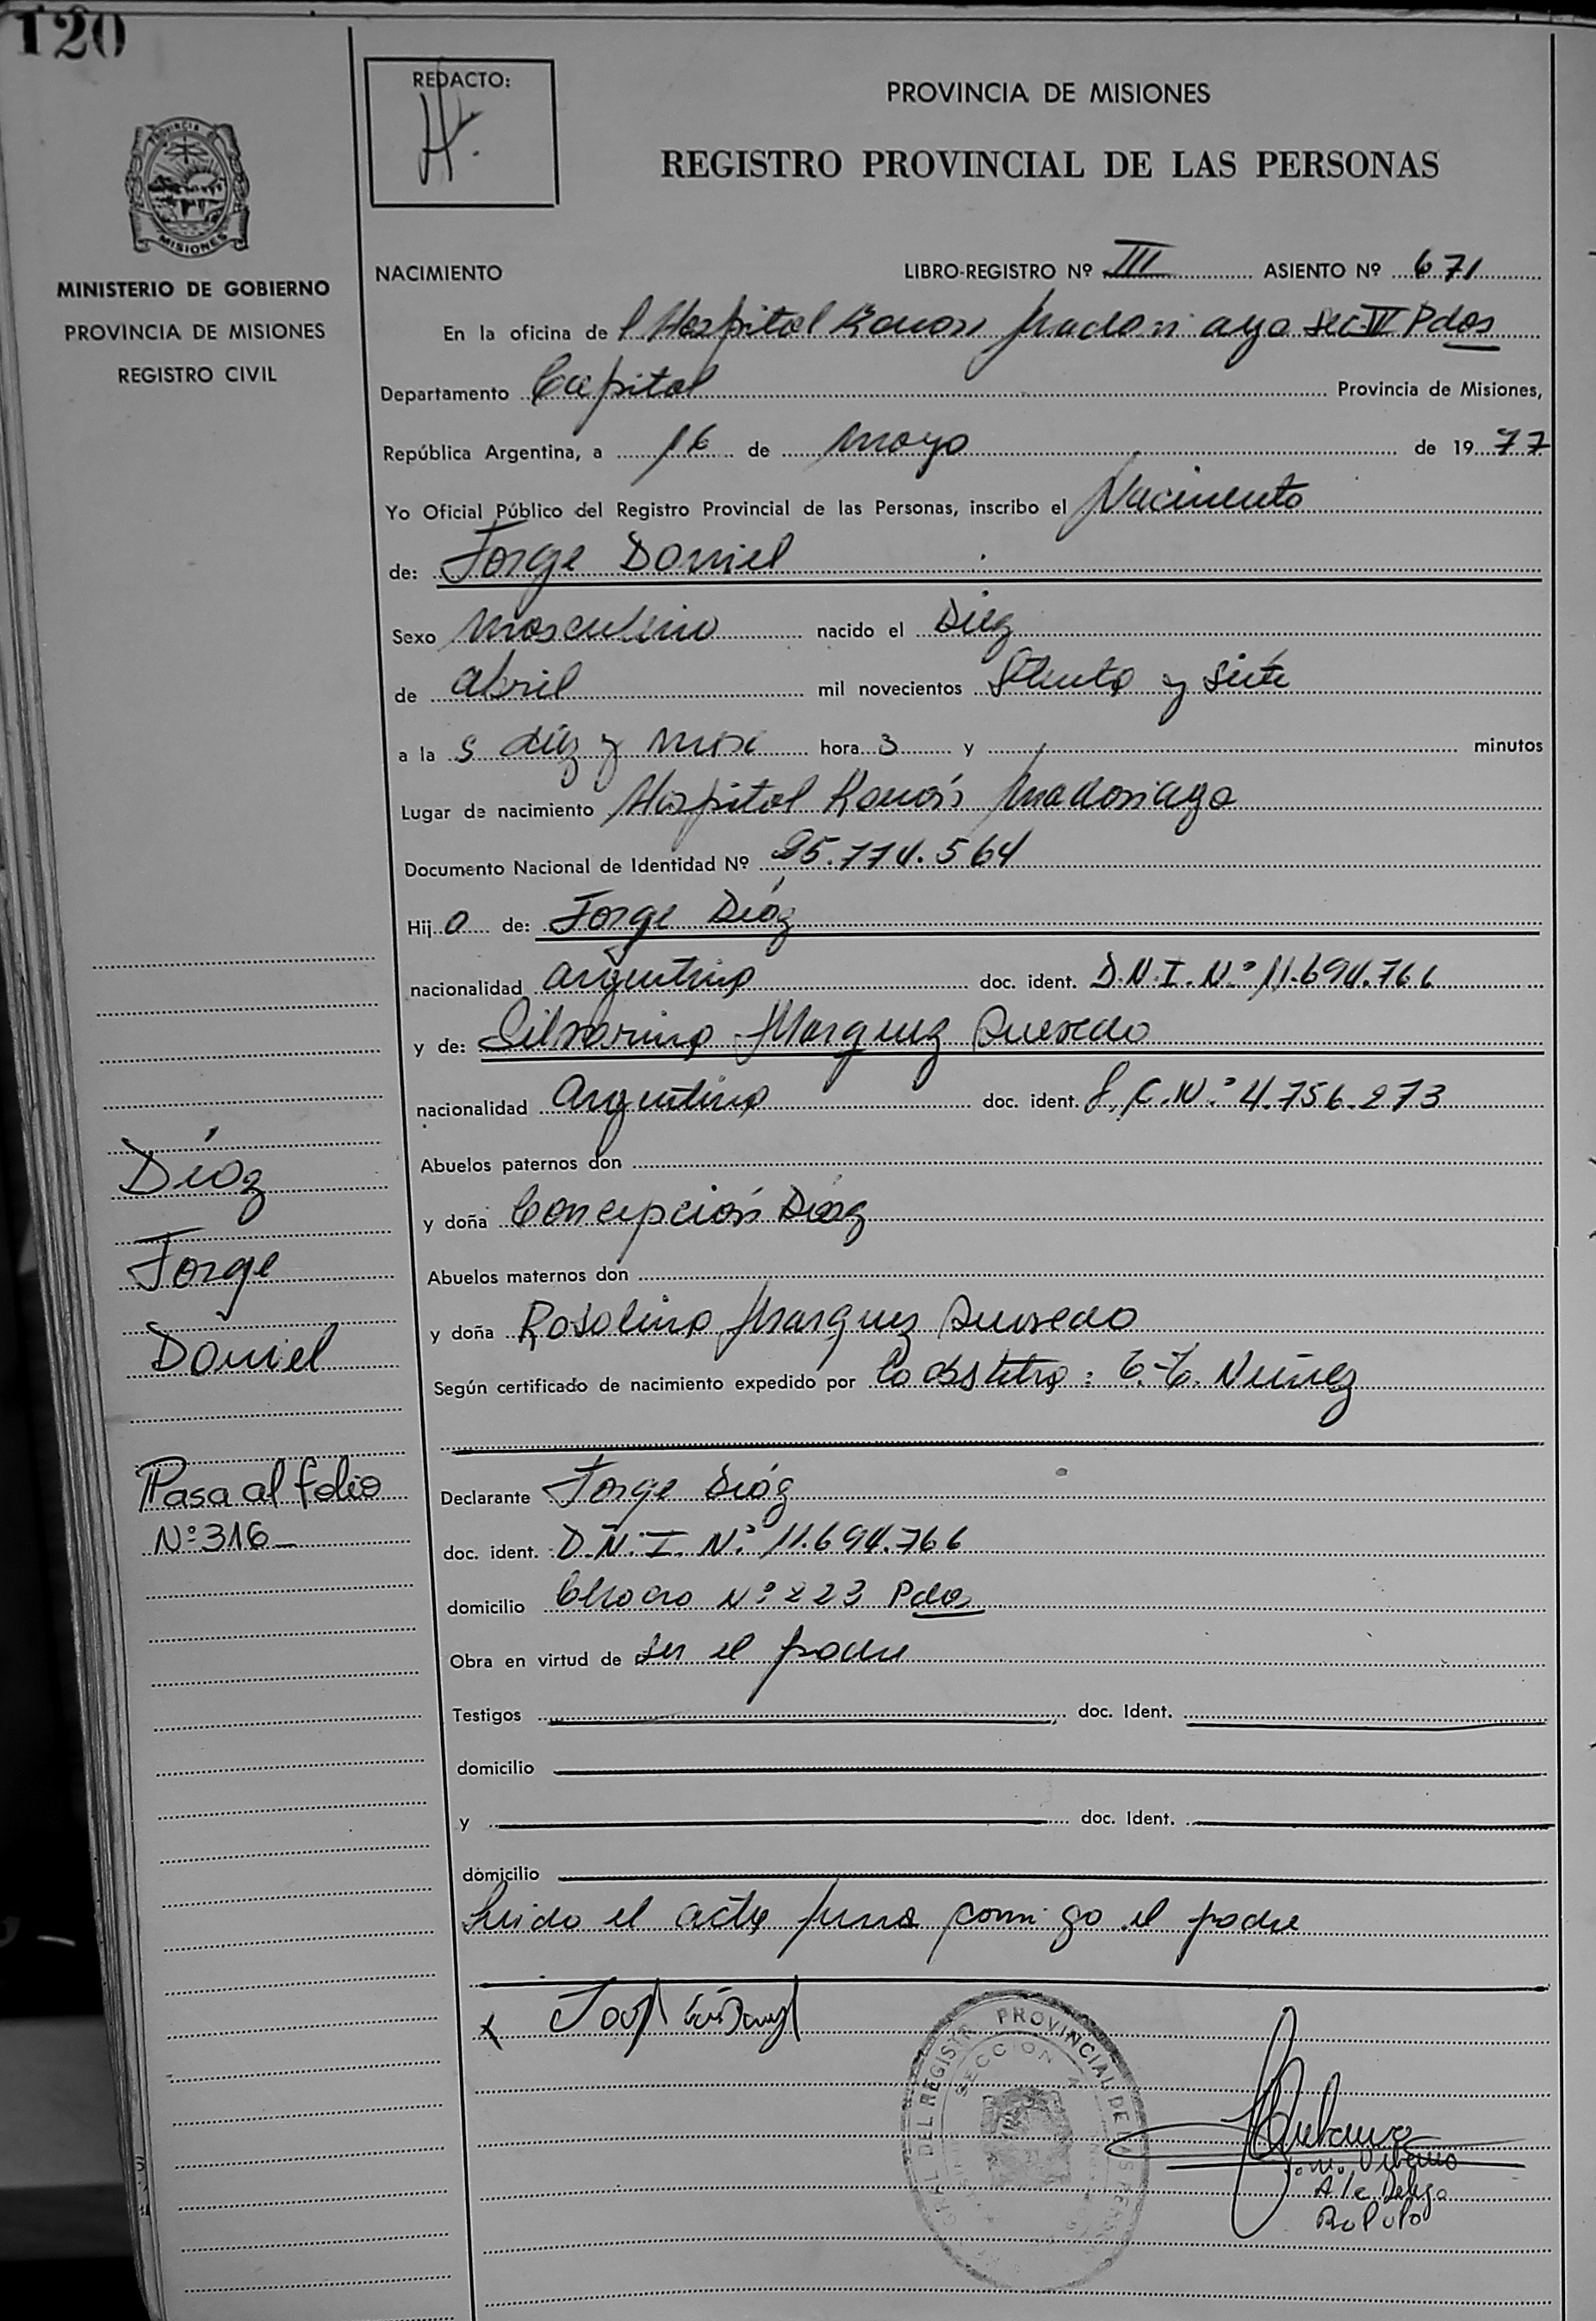 120
REDACTO:
PROVINCIA DE MISIONES
REGISTRO PROVINCIAL DE LAS PERSONAS
PROVINCIA DE
MISIONES
MINISTERIO DE GOBIERNO
PROVINCIA DE MISIONES
REGISTRO CIVIL
NACIMIENTO LIBRO-REGISTRO Nº III ASIENTO Nº 671
En la oficina de l Hospital Ramón Madariaga Sec. Pdas
Departamento Capital Provincia de Misiones,
República Argentina, a 16 de mayo de 1977
Yo Oficial Público del Registro Provincial de las Personas, inscribo el Nacimiento
de: Jorge Daniel
Sexo masculino nacido el Diez
de abril mil novecientos setenta y siete
a la s diez y nueve hora s y minutos
Lugar de nacimiento Hospital Ramón Madariaga
Documento Nacional de Identidad Nº 25.774.564
Hij o de: Jorge Díaz
nacionalidad argentina doc. ident. D.N.I. Nº 11.694.766
y de: Silvarina Marquez Quevedo
nacionalidad Argentina doc. ident. L.C. Nº 4.756.273
Abuelos paternos don
y doña Concepción Díaz
Abuelos maternos don
y doña Rosalina Marquez Quevedo
Según certificado de nacimiento expedido por La obstetra: Nuñez
Díaz
Jorge
Daniel
Pasa al folio
Nº 316
Declarante Jorge Díaz
doc. ident. D.N.I. Nº 11.694.766
domicilio Chaco Nº 223 Pdas
Obra en virtud de ser el padre
Testigos doc. Ident.
domicilio
y doc. Ident.
domicilio
Leida el acta firma conmigo el padre
x
DEL REGISTRO PROVINCIAL DE LAS PERSONAS
SECCION